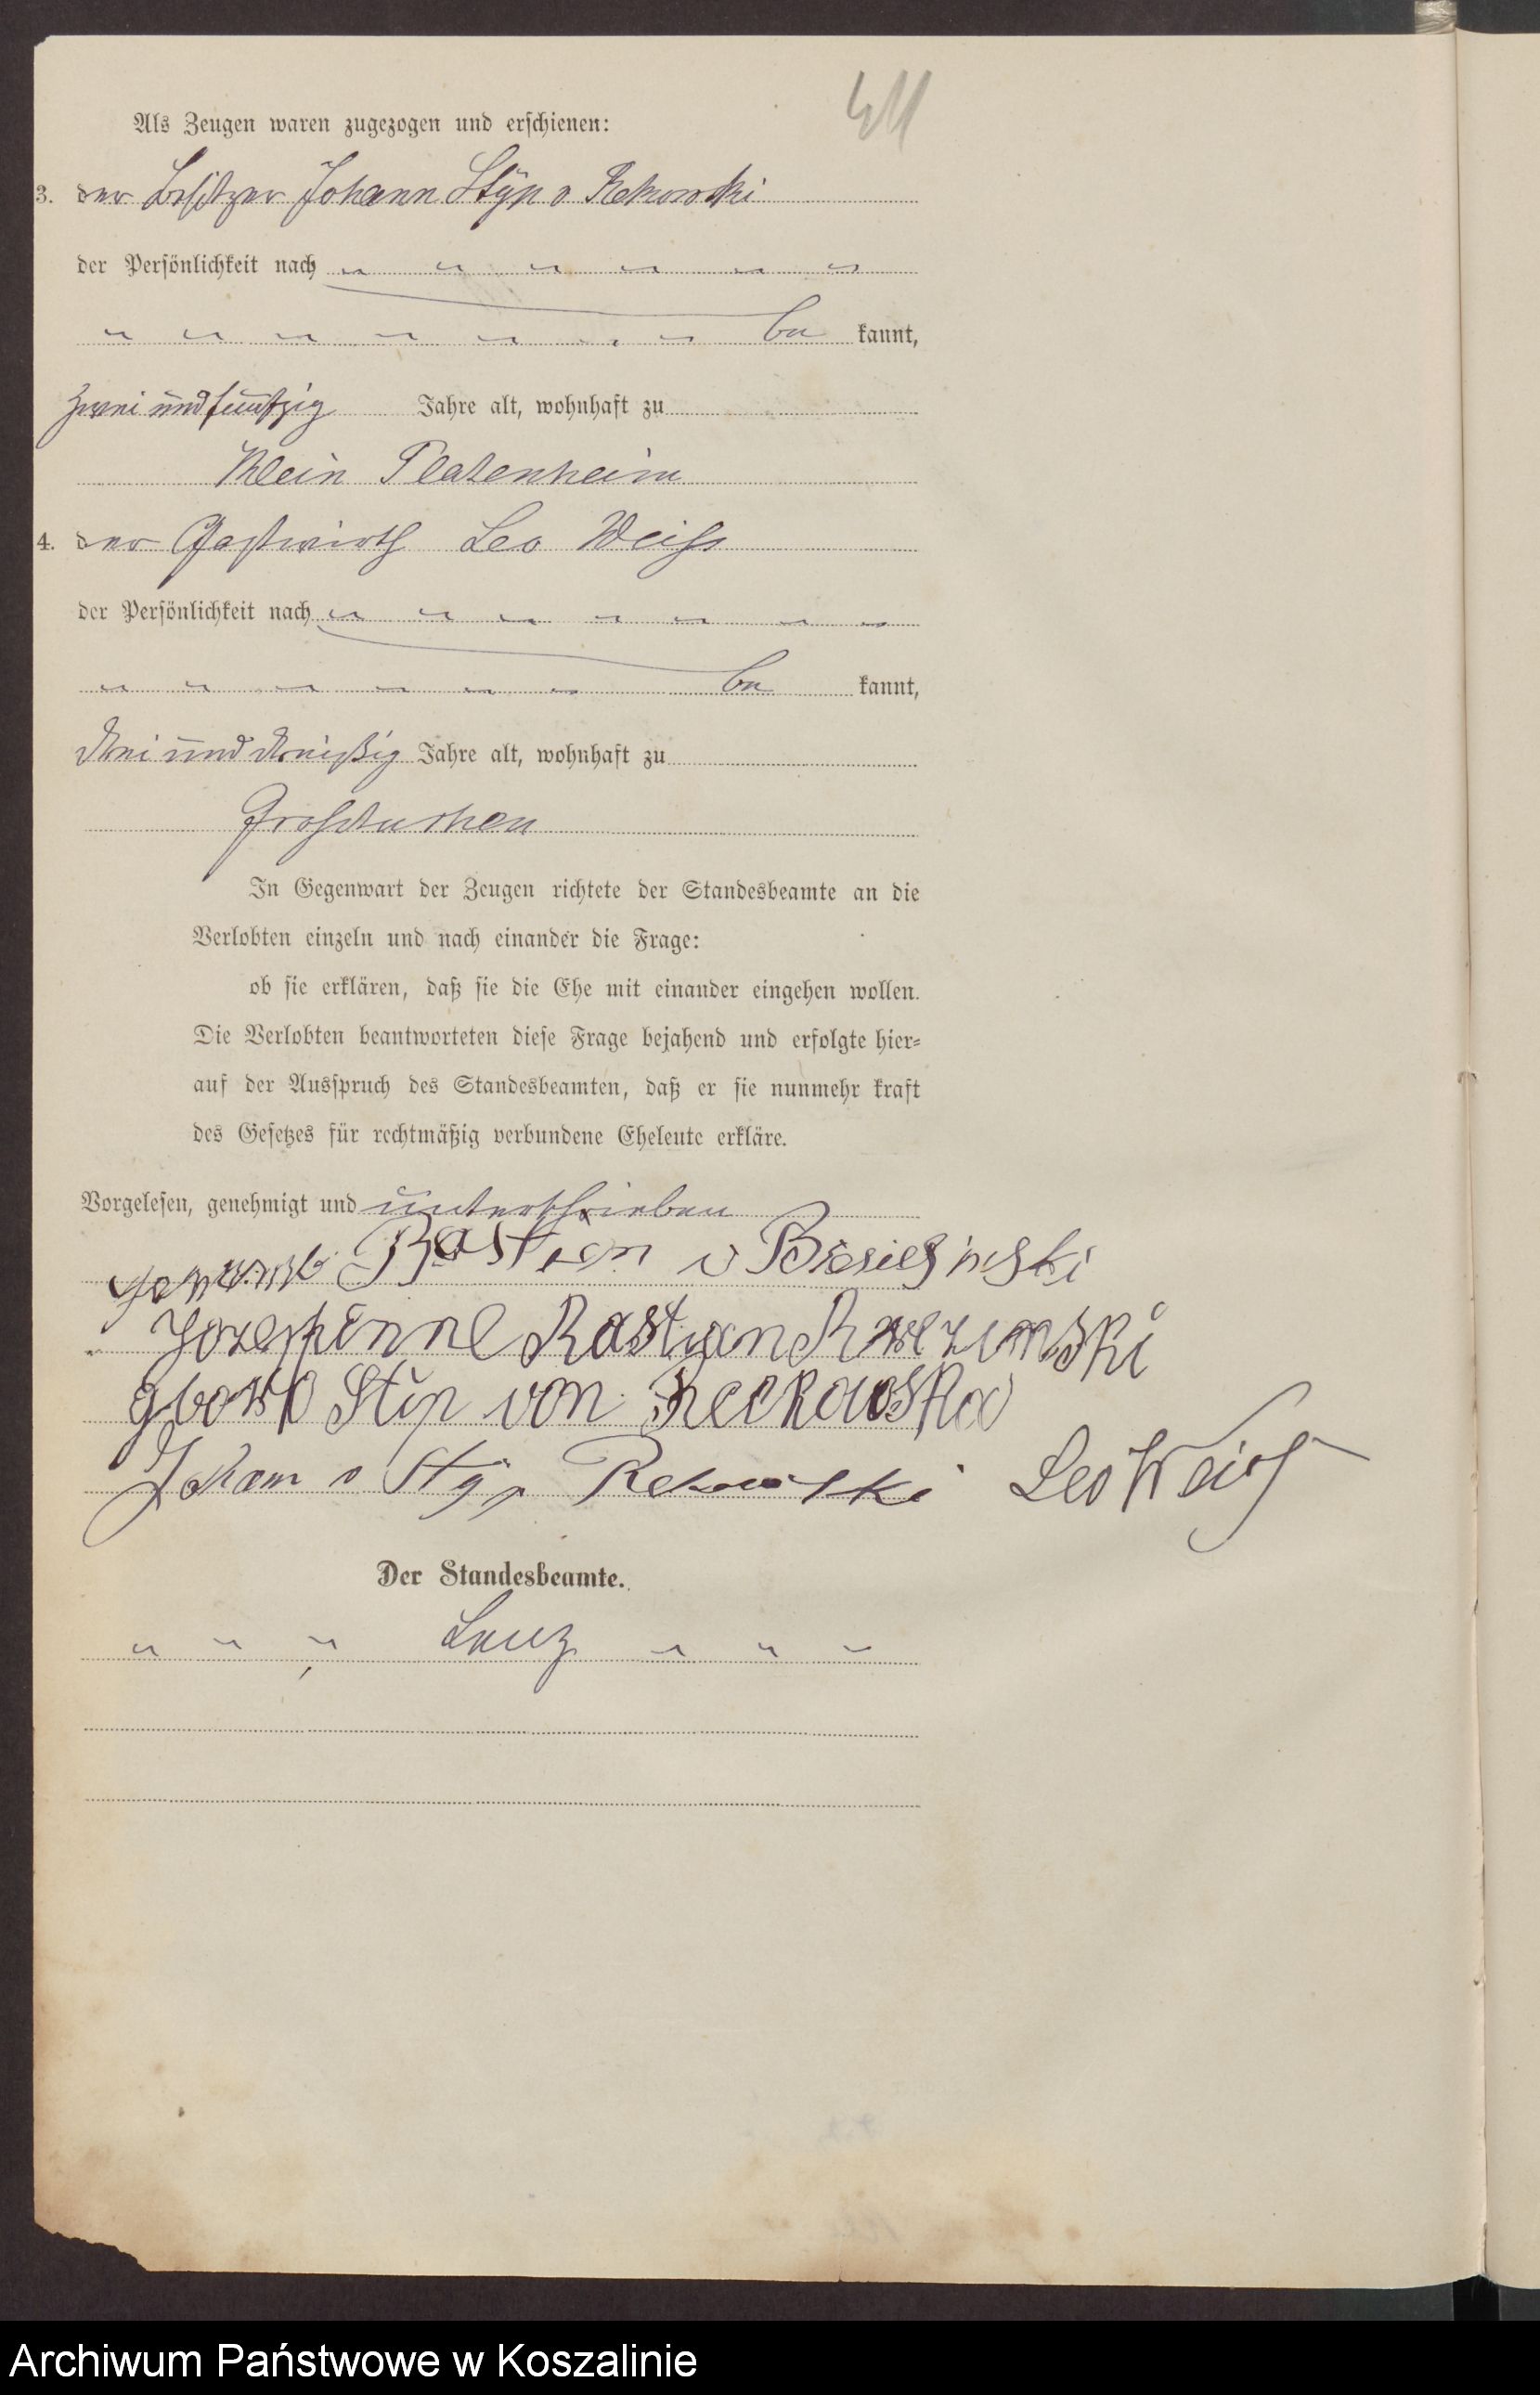 Als Zeugen waren zugezogen und erschienen:
3. der Besitzer Johann Styp v Rekowski
der Persönlichkeit nach
be kannt,
zwei und fünfzig Jahre alt, wohnhaft zu
Klein Platenheim
4. der Gastwirth Leo Weiss
der Persönlichkeit nach
be kannt,
drei und dreißig Jahre alt, wohnhaft zu
Großtuchen
In Gegenwart der Zeugen richtete der Standesbeamte an die
Verlobten einzeln und nach einander die Frage:
ob sie erklären, daß sie die Ehe mit einander eingehen wollen.
Die Verlobten beantworteten diese Frage bejahend und erfolgte hier-
auf der Ausspruch des Standesbeamten, daß er sie nunmehr kraft
des Gesetzes für rechtmäßig verbundene Eheleute erkläre.
Vorgelesen, genehmigt und unterschrieben
v
Styp von
Johann v Styp Rekowski Leo Weiss
Der Standesbeamte.
Archiwum Państwowe w Koszalinie